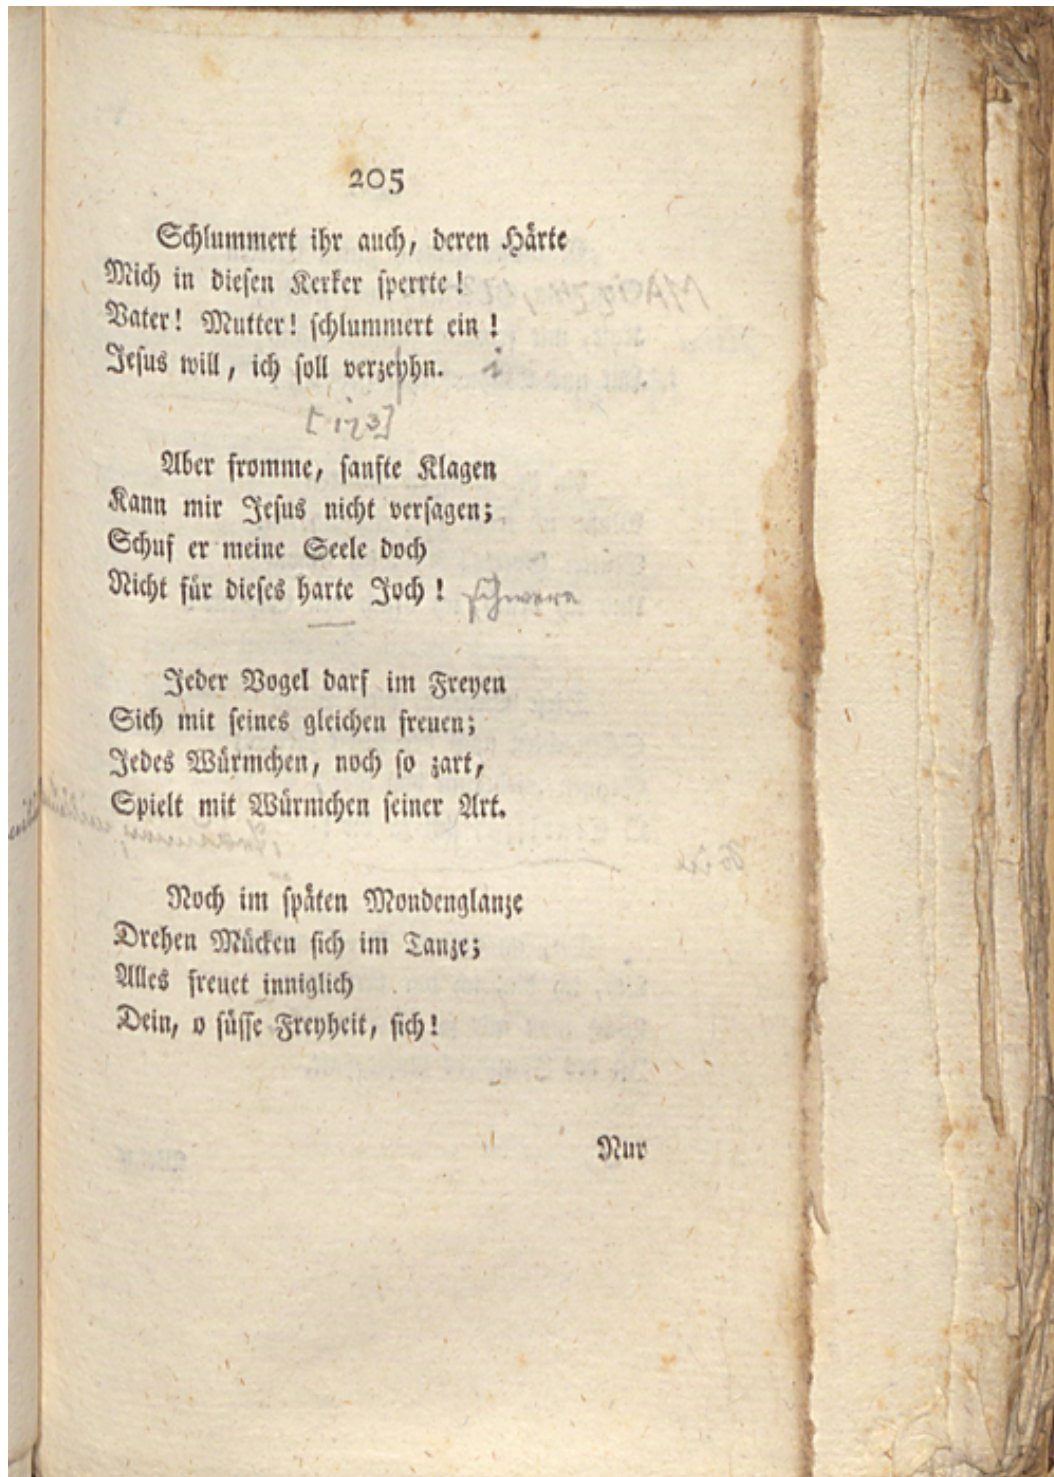 205
Schlummert ihr auch, deren Härte
Mich in diesen Kerker sperrte!
Vater! Mutter! schlummert ein!
Jesus will, ich soll verzeyhn. i
[173]
Aber fromme, sanfte Klagen
Kann mir Jesus nicht versagen;
Schuf er meine Seele doch
Nicht für dieses harte Joch! schwere
Jeder Vogel darf im Freyen
Sich mit seines gleichen freuen;
Jedes Würmchen, noch so zart,
Spielt mit Würmchen seiner Art.
Noch im späten Mondenglanze
Drehen Mücken sich im Tanze;
Alles freuet inniglich
Dein, o süsse Freyheit, sich!
Nur